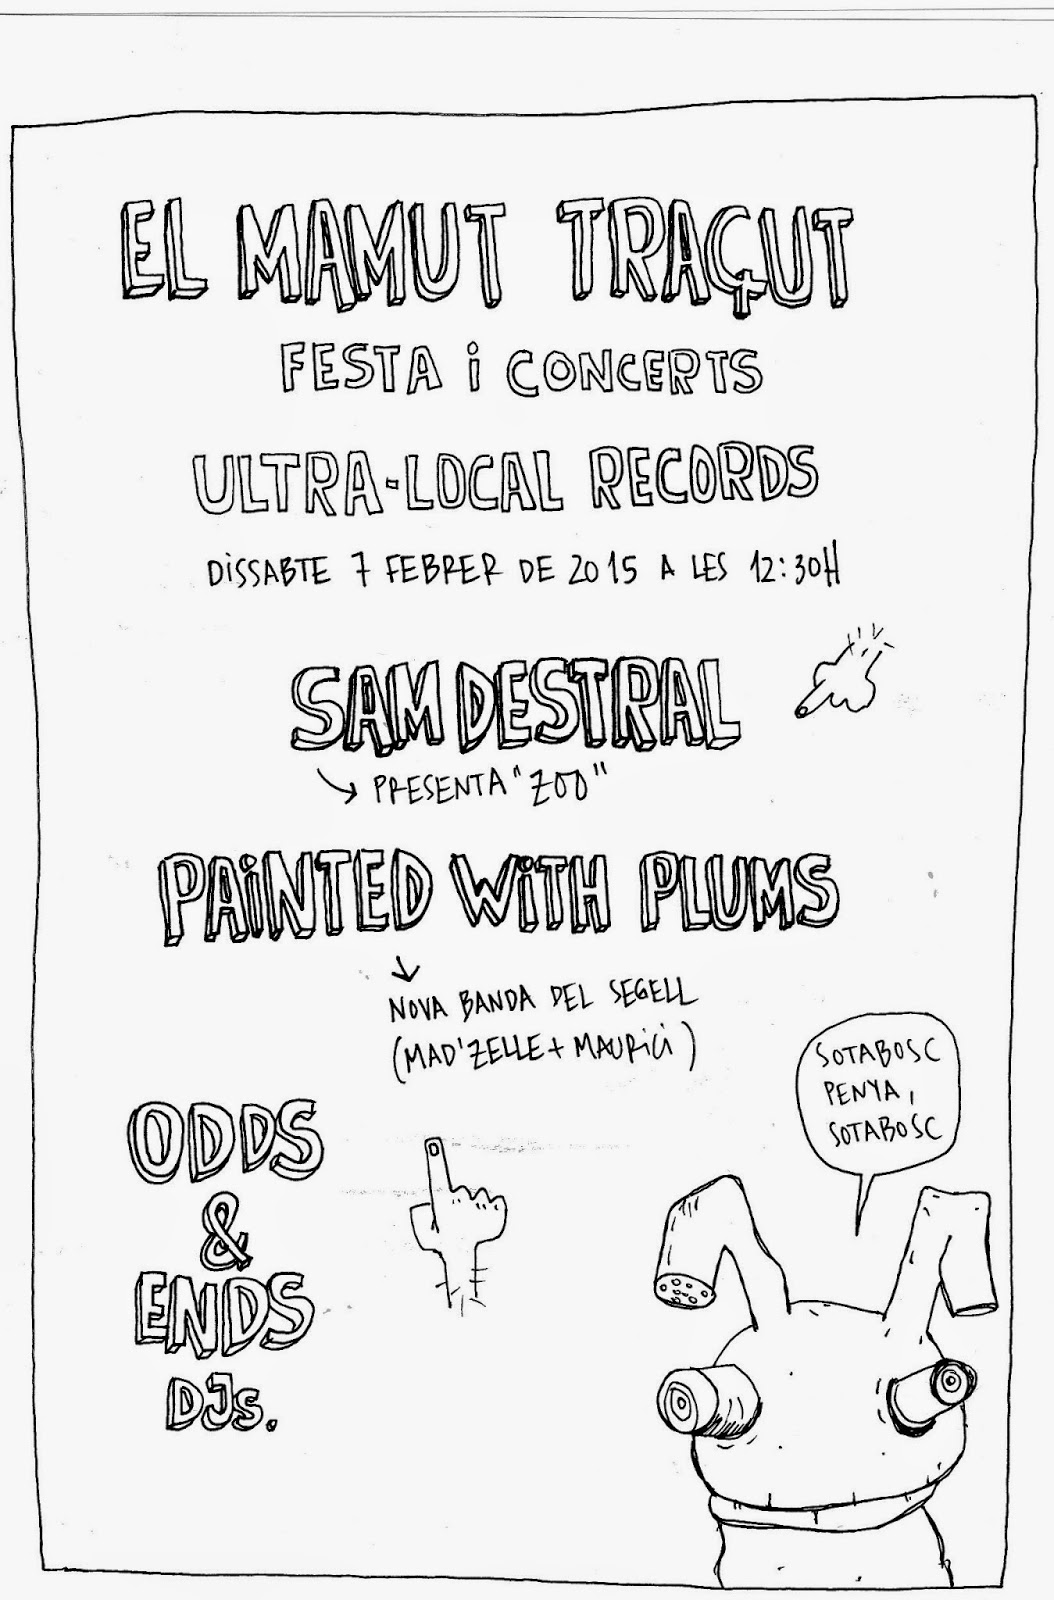 EL MAMUT TRAÇUT
FESTA i CONCERTS
ULTRA-LOCAL RECORDS
DiSSABTE 7 FEBRER DE 2015 A LES 12:30H
SAM DESTRAL
PRESENTA "ZOO"
PAiNTED WiTH PLUMS
NOVA BANDA DEL SEGELL
(MAD'ZELLE + MAURiCi)
SOTABOSC
PENYA,
SOTABOSC
ODDS
&
ENDS
DJs.